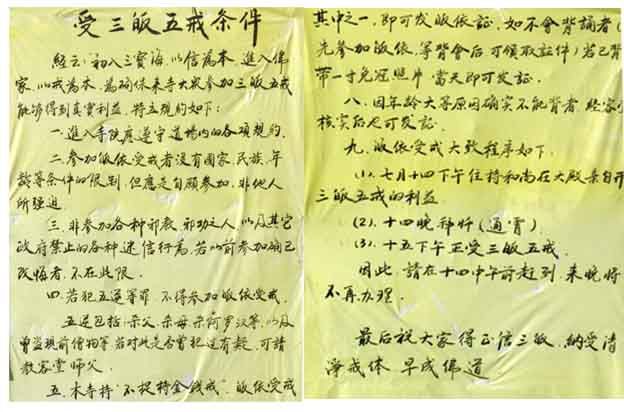 受三皈五戒条件
經云:“初入三寳海,以信為本,進入佛
家,以戒為本,為确保来寺大衆参加三皈五戒
能够得到真實利益,特立規約如下:
一.進入寺院應遵守道場内的各項規約.
二.参加皈依受戒者没有國家.民族.年
龄等条件的限别,但應是自願参加,非他人
所强迫.
三.非参加各种邪教.邪功之人,以及其它
政府禁止的各种迷信行為,若以前参加确已
改悔者,不在此限.
四.若犯五逆等罪,不得参加皈依受戒.
五逆包括:杀父.杀母.杀阿罗汉等,以及
曾盗現前僧物等,若对此是否曾犯过有疑,可請
教客堂师父.
五.本寺持“不捉持金钱戒”.皈依受戒
其中之一,即可发皈依証,如不會背誦者(
先参加皈依,等背會后可領取証件)若已背
带一寸免冠照片,當天即可发証.
八.因年龄大等原因确实不能背者,經客
核实后也可发証.
九.皈依受戒大致程序如下.
(1).七月十四下午住持和尚在大殿亲自开
三皈五戒的利益
(2).十四晚拜忏(通霄).
(3).十五下午正受三皈五戒.
因此,請在十四中午前赶到,来晚將
不再办理.
最后祝大家得正信三皈,納受清
淨戒体,早成佛道